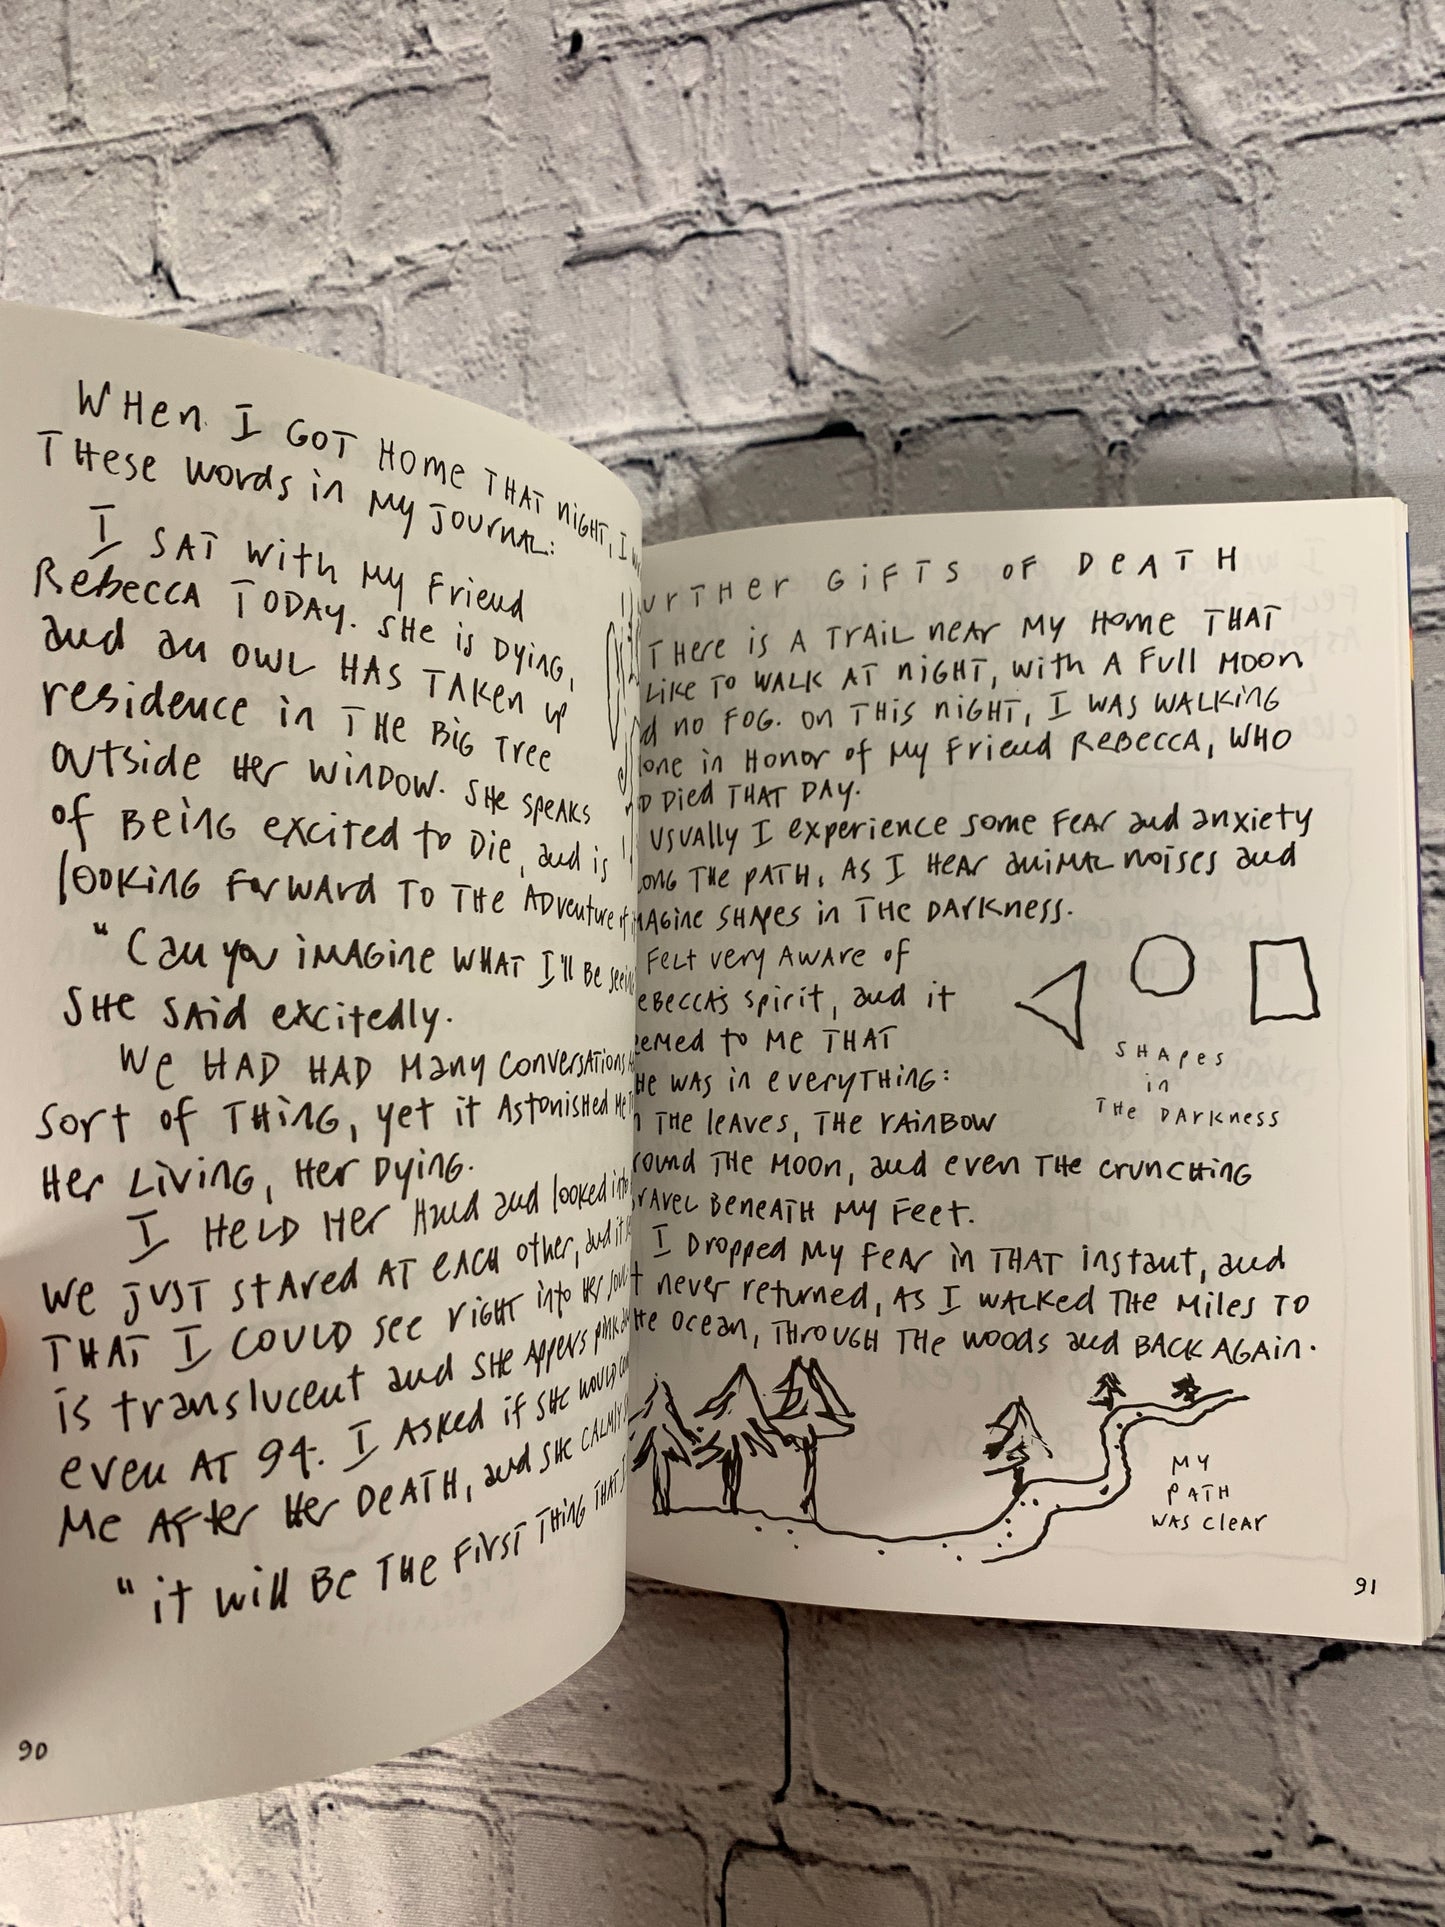 When I GOT HOME THAT niGHT, I
THese words in My journal:
I SAT with My Friend
Rebecca TODAY. SHe is Dying,
and an OWL HAS TAKen up
residence in THe Big Tree
outside Her window. SHe speaks
of Being excited to Die, and is
looking Forward To THe ADventure of
"Can you imagine WHAT I'll Be
SHe said excitedly.
We HAD HAD Many conversations
sort of THing, yet it Astonished Me
Her Living, Her Dying.
I HeLD Her Hand and looked into
We just stared AT each other, and it
THAT I COULD see right into Her soul
is translucent and SHe Appears pink
even AT 94. I Asked if SHe would
Me After Her DeATH, and SHe calmly
"it will Be THe First THing THAT
90
urTHer GiFTS oF DeATH
THere is A Trail near My Home THAT
Like To WALK AT niGHT, with A Full Moon
d no FOG. on THis niGHT, I was walking
lone in Honor of My Friend Rebecca, WHO
D Died THAT DAY.
usually I experience some Fear and anxiety
ong THe path, As I Hear animal noises and
magine SHapes in THe Darkness.
Felt very Aware of
ebecca's spirit, and it
eemed to Me THAT
He was in everyTHing:
n THe leaves, THe rainbow
round THe Moon, and even THe cruncHing
ravel Beneath My Feet.
I Dropped My Fear in THAT instant, and
t never returned, As I walked THe Miles TO
He ocean, THrough THe woods and BACK AGAin.
SHApes
in
THe DArkness
MY
PATH
WAS Clear
91